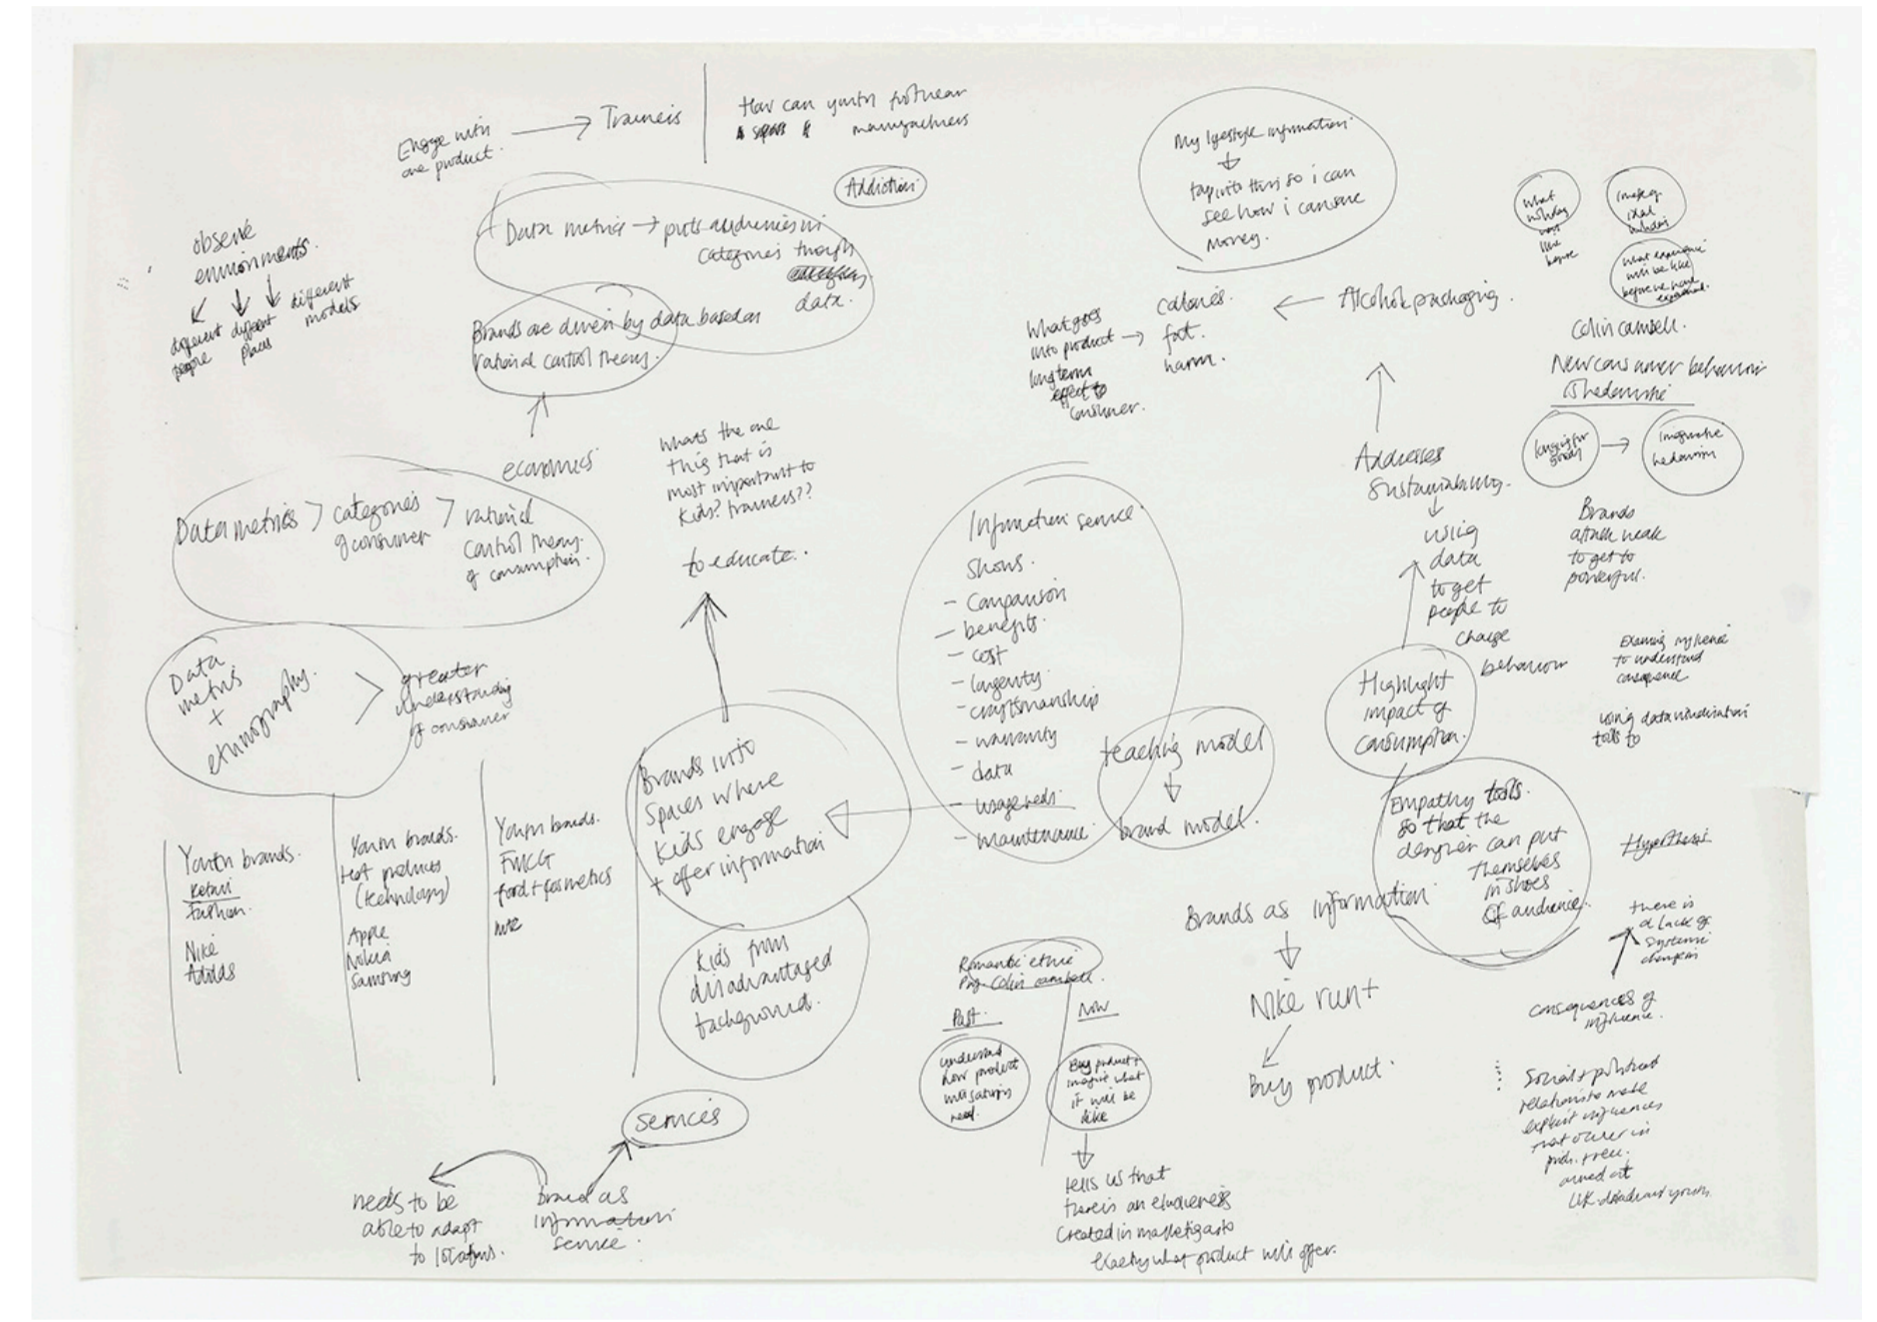 Engage with
one product.
Trainers
How can youth footwear
manufacturers
Addiction
observe
environments.
different
people
different
places
different
models
Data metrics → puts audiences in
categories though
data.
Brands are driven by data based on
rational control theory.
economics
Data metrics > categories
of consumer
> rational
control theory
of consumption.
Data
metrics
+
ethnography.
> greater
understanding
of consumer
Whats the one
this that is
most important to
kids? trainers??
to educate.
Youth brands.
Retail
Fashion.
Nike
Adidas
Youth brands.
Hot products
(technology)
Apple
Nokia
Samsung
Youth brands.
FMCG
food + cosmetics
Brands into
spaces where
kids engage
+ offer information
kids from
disadvantaged
backgrounds.
services
needs to be
able to adapt
to locations.
brand as
information
service.
Information service
shows.
- Comparison
- benefits.
- cost
- longevity.
- craftsmanship
- warranty
- data
- usage needs.
- maintenance.
teaching model
brand model.
My lifestyle information
tap into this so i can
see how i can save
money.
What goes
into product →
long term
effect to
consumer.
calories.
fat.
harm.
Alcohol packaging.
Addresses
Sustainability.
using
data
to get
people to
change
behaviour
Highlight
impact of
consumption.
Empathy tools.
so that the
designer can put
themselves
in shoes
of audience.
Brands as information
Nike run+
Buy product.
Romantic ethic
Past.
Now
understand
how product
will satisfy
need.
Buy product +
imagine what
it will be
like
tells us that
there is an
created in
exactly what product will offer.
What
holiday
was
like
before
image
ideal
holiday
what experience
will be like
before we have
experienced.
Colin cambell.
New consumer behaviour
is hedonistic
longing for
goods
→ Imaginative
hedonism
Brands
attack weak
to get to
powerful.
to understand
consequence
using data visualisation
tools to
Hypothesis
there is
a lack of
systemic
change in
consequences of
influence.
Social + political
relations to make
explicit influences
that occur in
aimed at